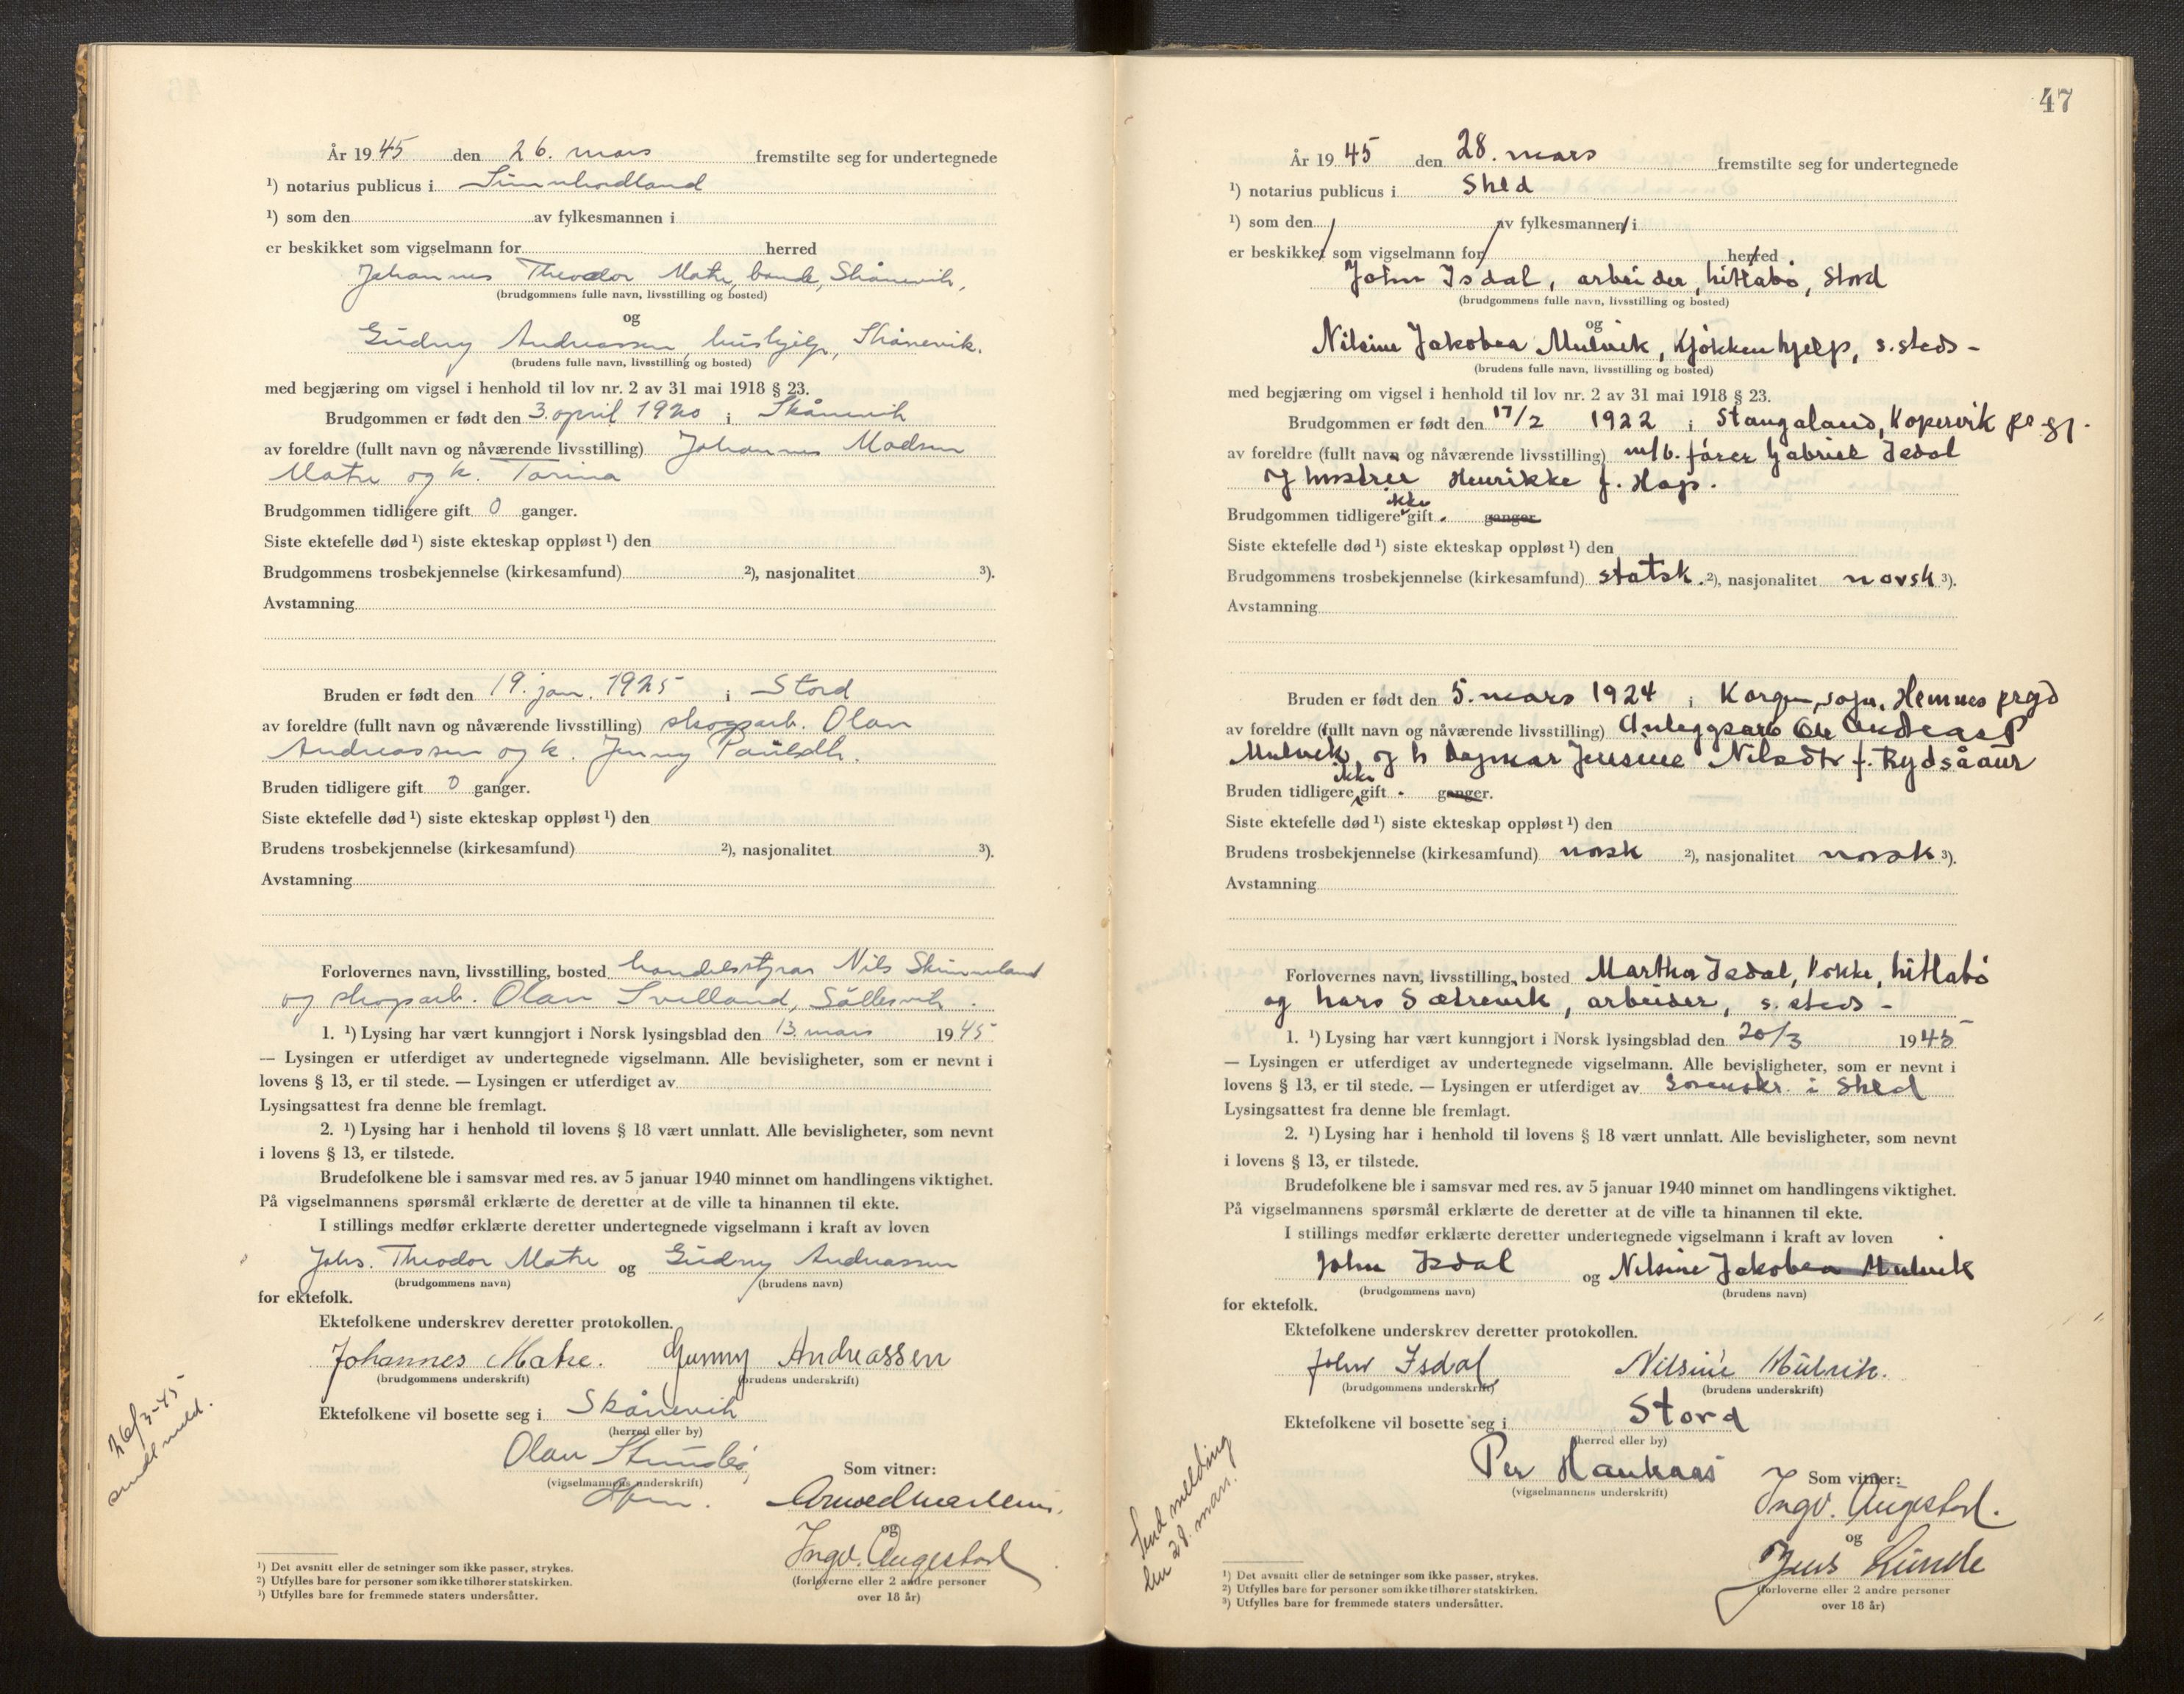 År 1945 den 26. mars fremstilte seg for undertegnede
¹) notarius publicus i Sunnhordland
¹) som den av fylkesmannen i
er beskikket som vigselmann for herred
Johannes Theodor Matre, bonde, Skånevik,
(brudgommens fulle navn, livsstilling og bosted)
og
Gudny Andreassen, hushjelp, Skånevik.
(brudens fulle navn, livsstilling og bosted)
med begjæring om vigsel i henhold til lov nr. 2 av 31 mai 1918 § 23.
Brudgommen er født den 3. april 1920 i Skånevik
av foreldre (fullt navn og nåværende livsstilling) Johannes Madsen
Matre og k. Torina
Brudgommen tidligere gift 0 ganger.
Siste ektefelle død ¹) siste ekteskap oppløst ¹) den
Brudgommens trosbekjennelse (kirkesamfund) ²), nasjonalitet ³).
Avstamning
Bruden er født den 19. jan. 1925 i Stord
av foreldre (fullt navn og nåværende livsstilling) skogsarb. Olan
Andreassen og k. Jenny Paulsdtr.
Bruden tidligere gift 0 ganger.
Siste ektefelle død ¹) siste ekteskap oppløst ¹) den
Brudens trosbekjennelse (kirkesamfund) ²), nasjonalitet ³).
Avstamning
Forlovernes navn, livsstilling, bosted handelsstyrar Nils Skimmeland
og skogsarb. Olan Svelland, Sållesvik.
1. ¹) Lysing har vært kunngjort i Norsk lysingsblad den 13. mars 1945
— Lysingen er utferdiget av undertegnede vigselmann. Alle bevisligheter, som er nevnt i
lovens § 13, er til stede. — Lysingen er utferdiget av
Lysingsattest fra denne ble fremlagt.
2. ¹) Lysing har i henhold til lovens § 18 vært unnlatt. Alle bevisligheter, som nevnt
i lovens § 13, er tilstede.
Brudefolkene ble i samsvar med res. av 5 januar 1940 minnet om handlingens viktighet.
På vigselmannens spørsmål erklærte de deretter at de ville ta hinannen til ekte.
I stillings medfør erklærte deretter undertegnede vigselmann i kraft av loven
Johs. Theodor Matre og Gudny Andreassen
(brudgommens navn) (brudens navn)
for ektefolk.
Ektefolkene underskrev deretter protokollen.
Johannes Matre. Gunny Andreassen
(brudgommens underskrift) (brudens underskrift)
Ektefolkene vil bosette seg i Skånevik
(herred eller by)
Olav
(vigselmannens underskrift)
Som vitner:
og
Ingv. Augestad
(forloverne eller 2 andre personer
over 18 år)
26/3-45
sendt meld.
¹) Det avsnitt eller de setninger som ikke passer, strykes.
²) Utfylles bare for personer som ikke tilhører statskirken.
³) Utfylles bare for fremmede staters undersåtter.
47
År 1945 den 28. mars fremstilte seg for undertegnede
¹) notarius publicus i Shld
¹) som den av fylkesmannen i
er beskikket som vigselmann for herred
John Isdal, arbeider, Littlabø, Stord
(brudgommens fulle navn, livsstilling og bosted)
og
Nilsine Jakobea Mulvik, Kjøkkenhjelp, s.steds -
(brudens fulle navn, livsstilling og bosted)
med begjæring om vigsel i henhold til lov nr. 2 av 31 mai 1918 § 23.
Brudgommen er født den 17/2 1922 i Stangaland, Kopervik pr.gj.
av foreldre (fullt navn og nåværende livsstilling) m/b. fører Gabriel Isdal
og hustru Henrikke f. Hop.
Brudgommen tidligere ikke gift. ganger
Siste ektefelle død ¹) siste ekteskap oppløst ¹) den
Brudgommens trosbekjennelse (kirkesamfund) statsk. ²), nasjonalitet norsk ³).
Avstamning
Bruden er født den 5. mars 1924 i Korgen, sogn, Hemnes prgd
av foreldre (fullt navn og nåværende livsstilling) Anleggsarb Ole Andreas P
Mulvik, og h Dagmar Jensine Nilsdtr f. Rydsåaur
Bruden tidligere ikke gift - ganger.
Siste ektefelle død ¹) siste ekteskap oppløst ¹) den
Brudens trosbekjennelse (kirkesamfund) norsk ²), nasjonalitet norsk ³).
Avstamning
Forlovernes navn, livsstilling, bosted Martha Isdal, kokke, Littlabø
og Lars Sætrevik, arbeider, s. steds -
1. ¹) Lysing har vært kunngjort i Norsk lysingsblad den 20/3 1945
— Lysingen er utferdiget av undertegnede vigselmann. Alle bevisligheter, som er nevnt i
lovens § 13, er til stede. — Lysingen er utferdiget av Sorenskr. i Shld
Lysingsattest fra denne ble fremlagt.
2. ¹) Lysing har i henhold til lovens § 18 vært unnlatt. Alle bevisligheter, som nevnt
i lovens § 13, er tilstede.
Brudefolkene ble i samsvar med res. av 5 januar 1940 minnet om handlingens viktighet.
På vigselmannens spørsmål erklærte de deretter at de ville ta hinannen til ekte.
I stillings medfør erklærte deretter undertegnede vigselmann i kraft av loven
John Isdal og Nilsine Jakobea Mulvik
(brudgommens navn) (brudens navn)
for ektefolk.
Ektefolkene underskrev deretter protokollen.
John Isdal Nilsine Mulvik.
(brudgommens underskrift) (brudens underskrift)
Ektefolkene vil bosette seg i Stord
(herred eller by)
Per Haukaas
(vigselmannens underskrift)
Som vitner:
Ingv. Augestad.
og
Jens Lunde
(forloverne eller 2 andre personer
over 18 år)
Send melding
den 28. mars.
¹) Det avsnitt eller de setninger som ikke passer, strykes.
²) Utfylles bare for personer som ikke tilhører statskirken.
³) Utfylles bare for fremmede staters undersåtter.